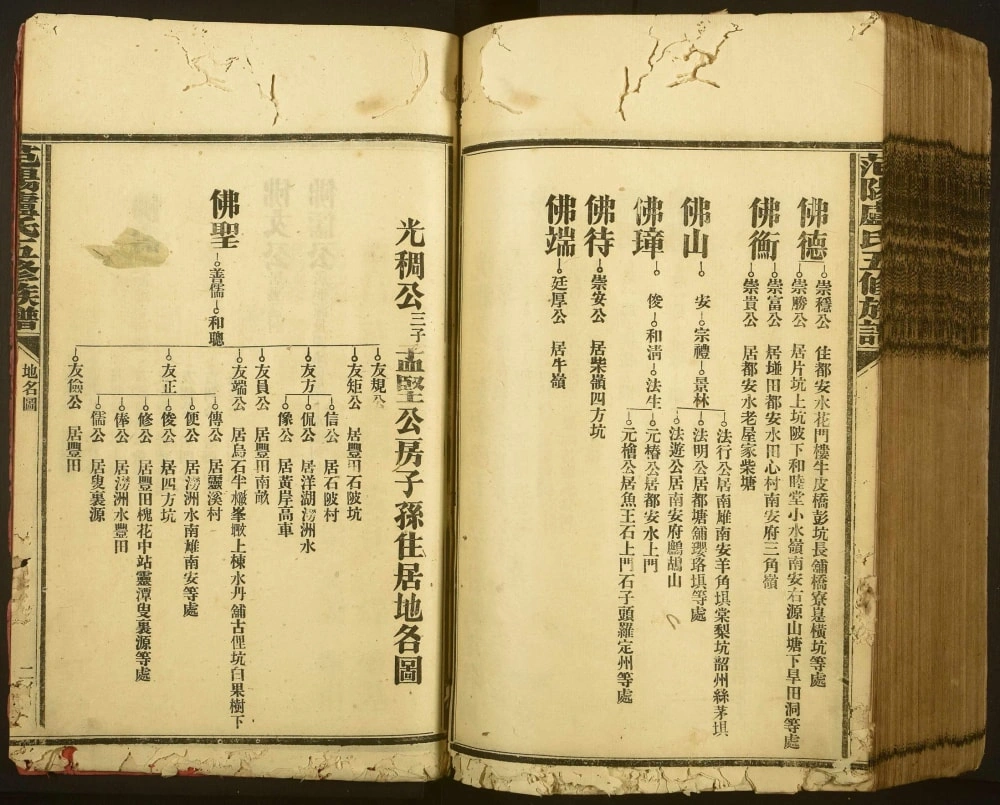 范陽盧氏五修族譜
佛德
崇穩公 住都安水花門樓牛皮橋彭坑長舖橋寮是橫坑等處
崇勝公 居片坑上坑陂下和睦堂小水嶺南安右源山塘下旱田洞等處
佛衡
崇富公 居埂田都安水田心村南安府三角嶺
崇貴公 居都安水老屋家柴塘
佛山 安 宗禮 景林
法行公居南雄南安羊角垻棠梨坑韶州絲茅垻
法明公居都塘舖瓔珞垻等處
法遊公居南安府鷓鴣山
佛璋 俊 和清 法生
元椿公居都安水上門
元檜公居魚王石上門石子頭羅定州等處
佛待 崇安公 居柴嶺四方坑
佛端 廷厚公 居牛嶺
光稠公三子孟堅公房子孫住居地各圖
佛聖 善儒 和聰
友規公
友矩公 居豐田石陂坑
友方
信公 居石陂村
侃公 居洋湖澇洲水
像公 居黃岸高車
友員公 居豐田南畝
友端公 居烏石半檥峯墩上棟水丹舖古俚坑白果樹下
友正
傳公 居靈溪村
便公 居澇洲水南雄南安等處
俊公 居四方坑
修公 居豐田槐花中站靈潭叟裏源等處
俸公 居澇洲水豐田
儒公 居叟裏源
友儉公 居豐田
范陽盧氏五修族譜
地名圖
二